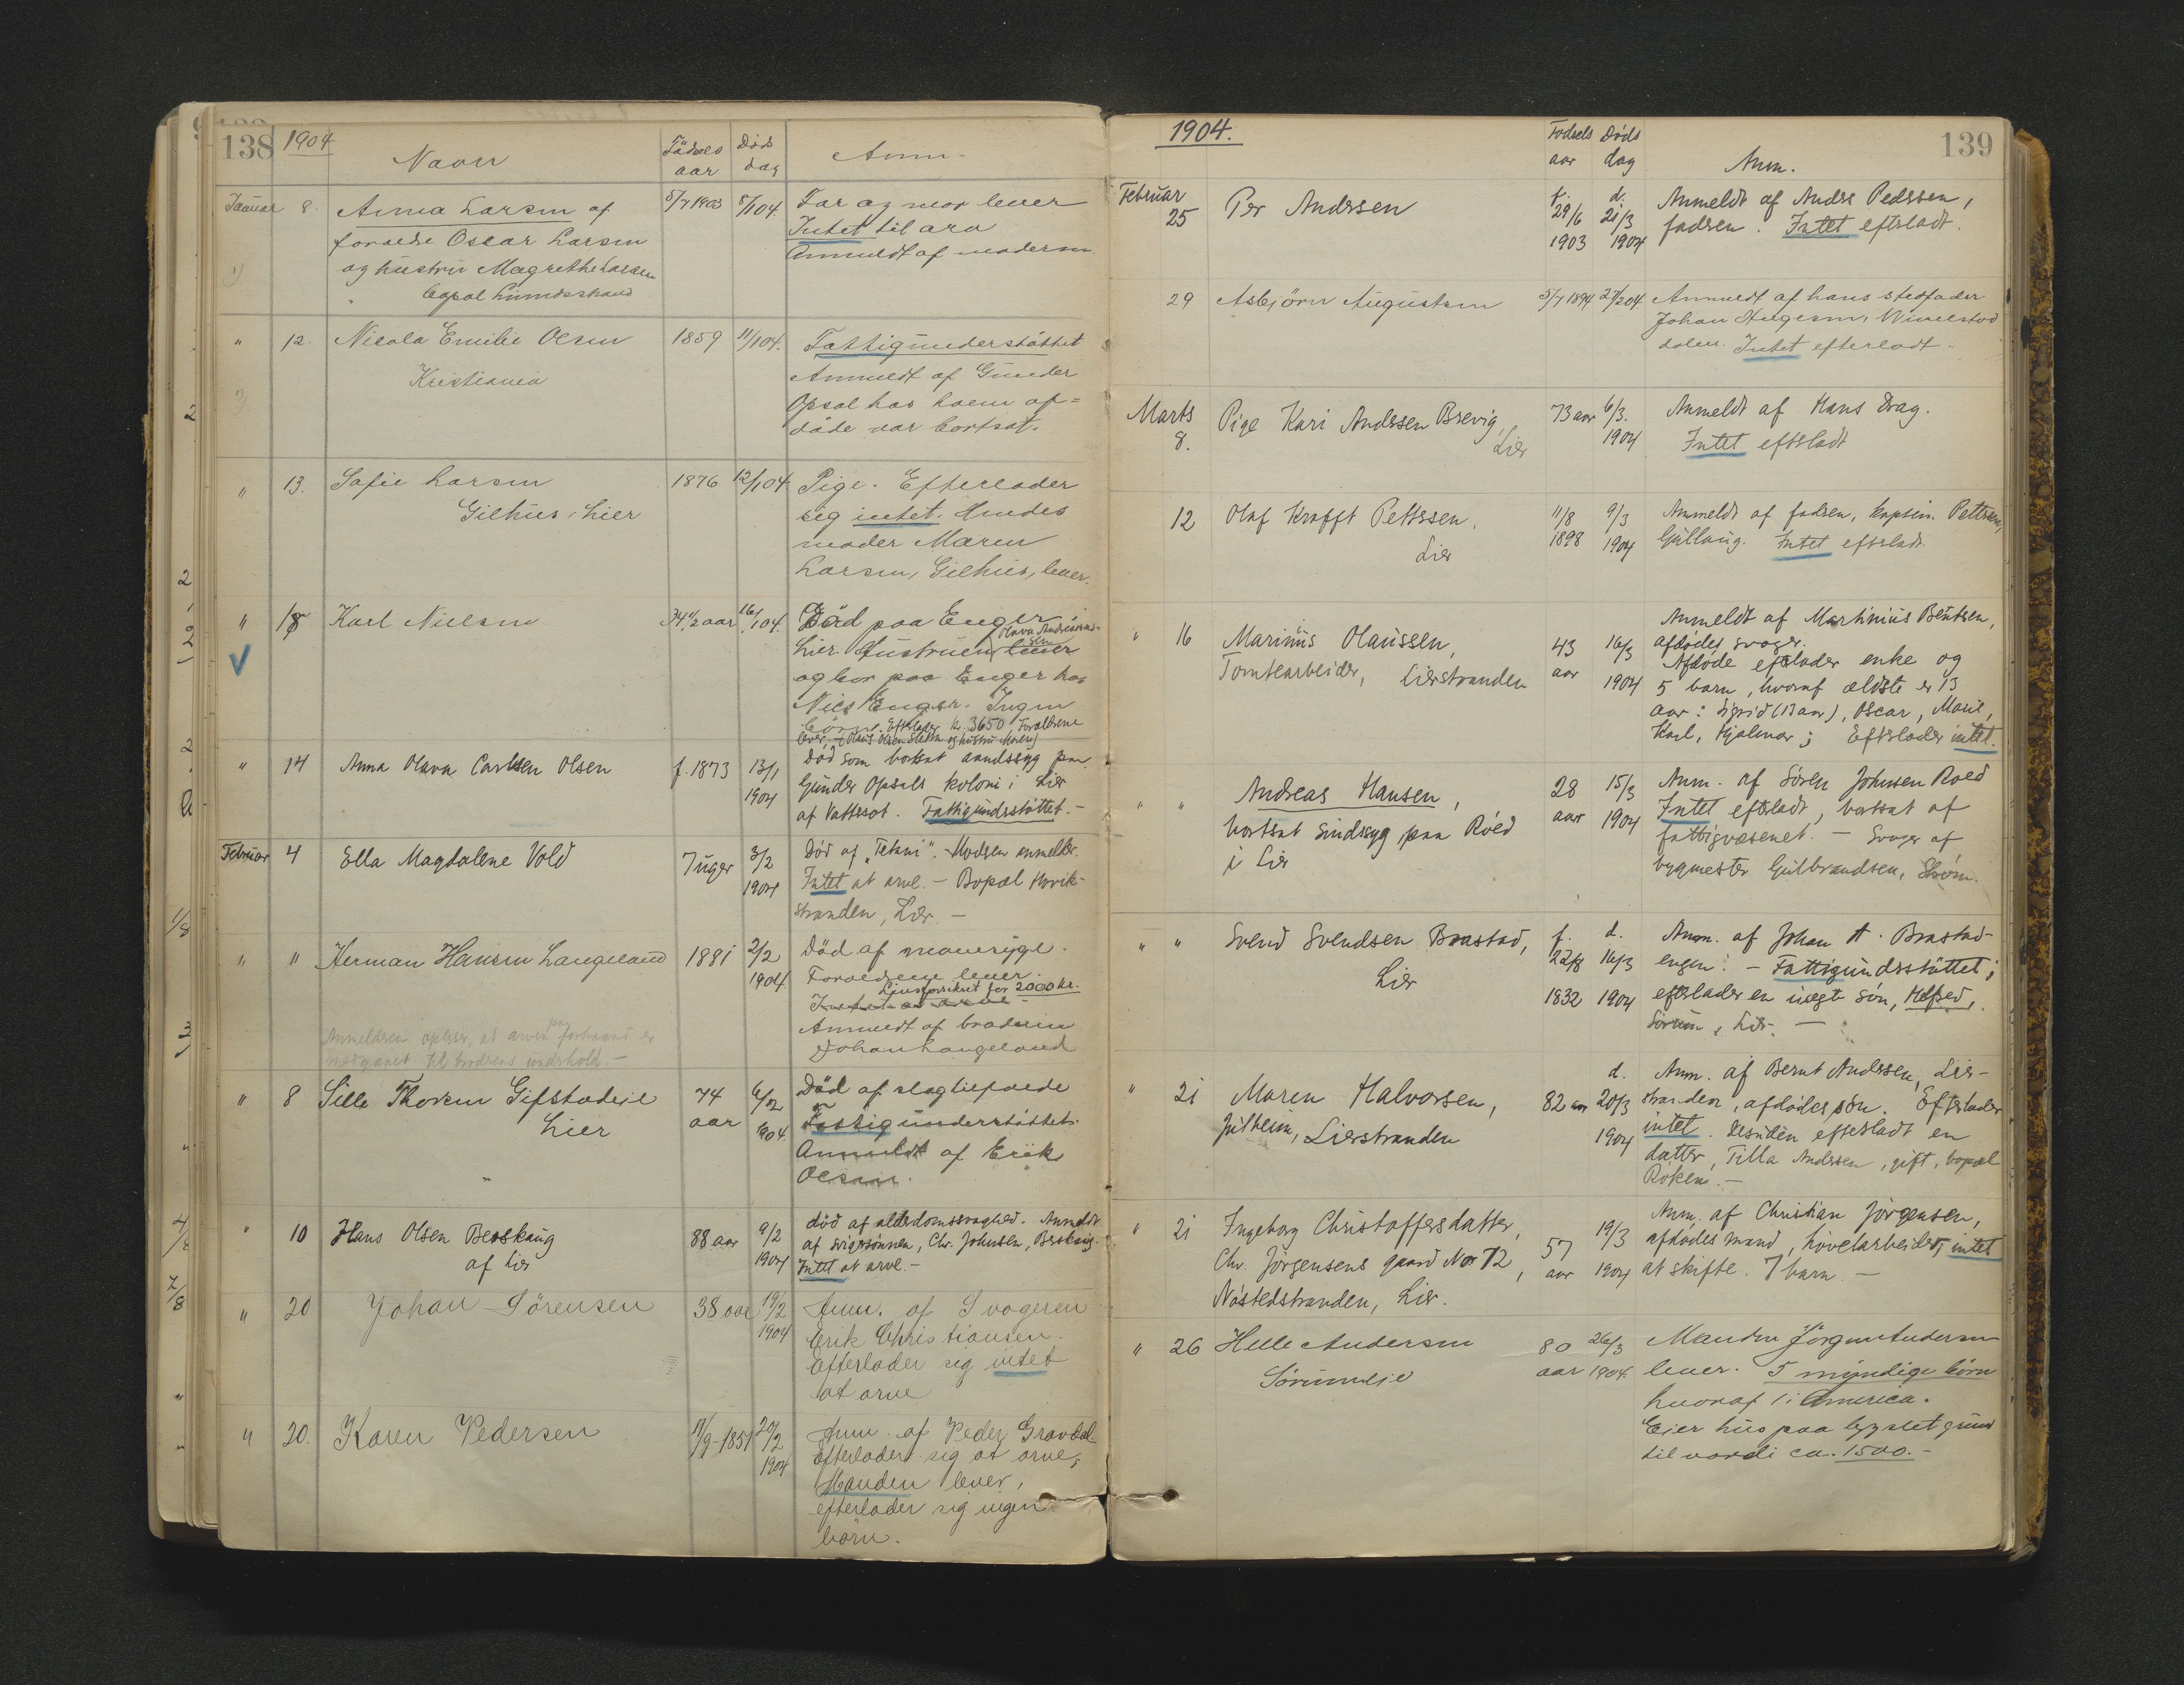 138 1904
Navn
Födsels aar
Död dag
Anm.
Januar 8. Anna Larsen af
foraeldre Oscar Larsen
og hustru Magrethe Larsen
5/7 1903 8/1 04.
Far og mor lever
Intet til arv
Anmeldt af moderen
" 12. Nicola Emilie Olsen
Kristiania
1859 11/1 04.
Fattigunderstöttet
Anmeldt af Gunder
Opsal hos hvem af=
döde var bortsat.
" 13. Sofie Larsen
Gilhus, Lier
1876 12/1 04
Pige. Efterlader
sig intet. Hendes
moder Maren
Larsen, Gilhus, lever.
" 18 Karl Nielsen
34 1/2 aar 16/1 04.
Död paa Enger i
Lier. Hustruen lever
og bor paa Enger hos
Niels Enger. Ingen
börn. Efterlader kr. 3650, Foraeldrene
lever,
" 14 Anna Olava Carlsen Olsen
f. 1873 13/1
1904
Död som bortsat aandssyg paa
Gunder Opsals koloni i Lier
af Vattersot. Fattigunderstöttet. -
Februar 4 Ella Magdalene Vold
7 uger 3/2
1904
Död af "Tetani". - Moderen anmelder.
Intet at arve. - Bopæl Hovik-
stranden, Lier. -
" " Herman Hansen Langeland
1881 2/2
1904
Död af mavesyge.
Foraeldrene lever.
Livsforsikret for 2000 kr.
Intet at arve
Anmeldt af broderen
Johan Langeland
Anmelderen oplyser, at arven paa forhaand er
medgaaet til broderens underhold. -
" 8 Sille Thoresen Gifstadeie
Lier
74
aar
6/2
1904.
Död af slagtilfaelde
Fattigunderstöttet.
Anmeldt af Erik
Olsen.
" 10 Hans Olsen Berskaug
af Lier
88 aar 9/2
1904
död af alderdomssvaghed. Anmeldt
af svigersönnen, Chr. Johnsen, Berskaug.
Intet at arve. -
" 20 Johan Sörensen
38 aar 19/2
1904
Anm. af Svogeren
Erik Christiansen.
Efterlader sig intet
at arve
" 20. Karen Pedersen
11/9-1851 20/2
1904
Anm. af Peder Gravdal
Efterlader sig at arve,
Manden lever,
efterlader sig ingen
börn.
1904. 139
Fodsels aar
Döds dag
Anm.
Februar
25 Per Andersen
f. 29/6
1903
d. 21/3
1904
Anmeldt af Anders Pedersen,
faderen. Intet efterladt.
29 Asbjörn Augustsen
5/7 1894 27/2 04
Anmeldt af hans stedfader
dalen. Intet efterladt.
Marts
8. Pige Kari Andersen Brevig,
Lier
73 aar 6/3.
1904
Anmeldt af Hans Drag.
Intet efterladt
12 Olaf Krafft Pettersen,
Lier
11/8
1898
9/3
1904
Anmeldt af faderen, kaptein Pettersen,
Gullaug. Intet efterladt.
" 16 Marinius Olaussen,
Tomtearbeider, Lierstranden
43
aar
16/3
1904
Anmeldt af Martinius Bentsen,
afdödes svoger.
Afdöde efterlader enke og
5 barn, hvoraf ældste er 13
aar: Sigrid (13 aar), Oscar, Marie,
Karl, Hjalmar; Efterlader intet.
" " Andreas Hansen,
bortsat sindssyg paa Röed
i Lier
28
aar
15/3
1904
Anm. af Sören Johnsen Röed
Intet efterladt, bortsat af
fattigvæsenet. - Svoger af
bygmester Gulbrandsen, Ström.
" " Svend Svendsen Brastad,
Lier
f.
22/8
1832
d.
16/3
1904
Anm. af Johan A. Brastad-
engen. - Fattigunderstöttet;
efterlader en uægte sön, Alfred,
Sörum, Lier. -
" 21 Maren Halvorsen,
Julheim, Lierstranden
82 aar
d.
20/3
1904
Anm. af Bernt Andersen, Lier-
stranden, afdödes sön. Efterlader
intet. Desuden efterladt en
datter, Tilla Andersen, gift, bopæl
Röken. -
" 21 Ingeborg Christoffersdatter,
Chr. Jörgensens gaard No 72,
Nöstedstranden, Lier.
57
aar
19/3
1904
Anm. af Christian Jörgensen,
afdödes mand, hövelarbeider; intet
at skifte. 7 barn -
" 26 Helle Andersen
80
aar
26/3
1904.
Manden Jörgen Andersen
lever. 5 myndige börn
hvoraf 1 i America.
Eier hus paa bygslet grund
til værdi ca. 1500. -